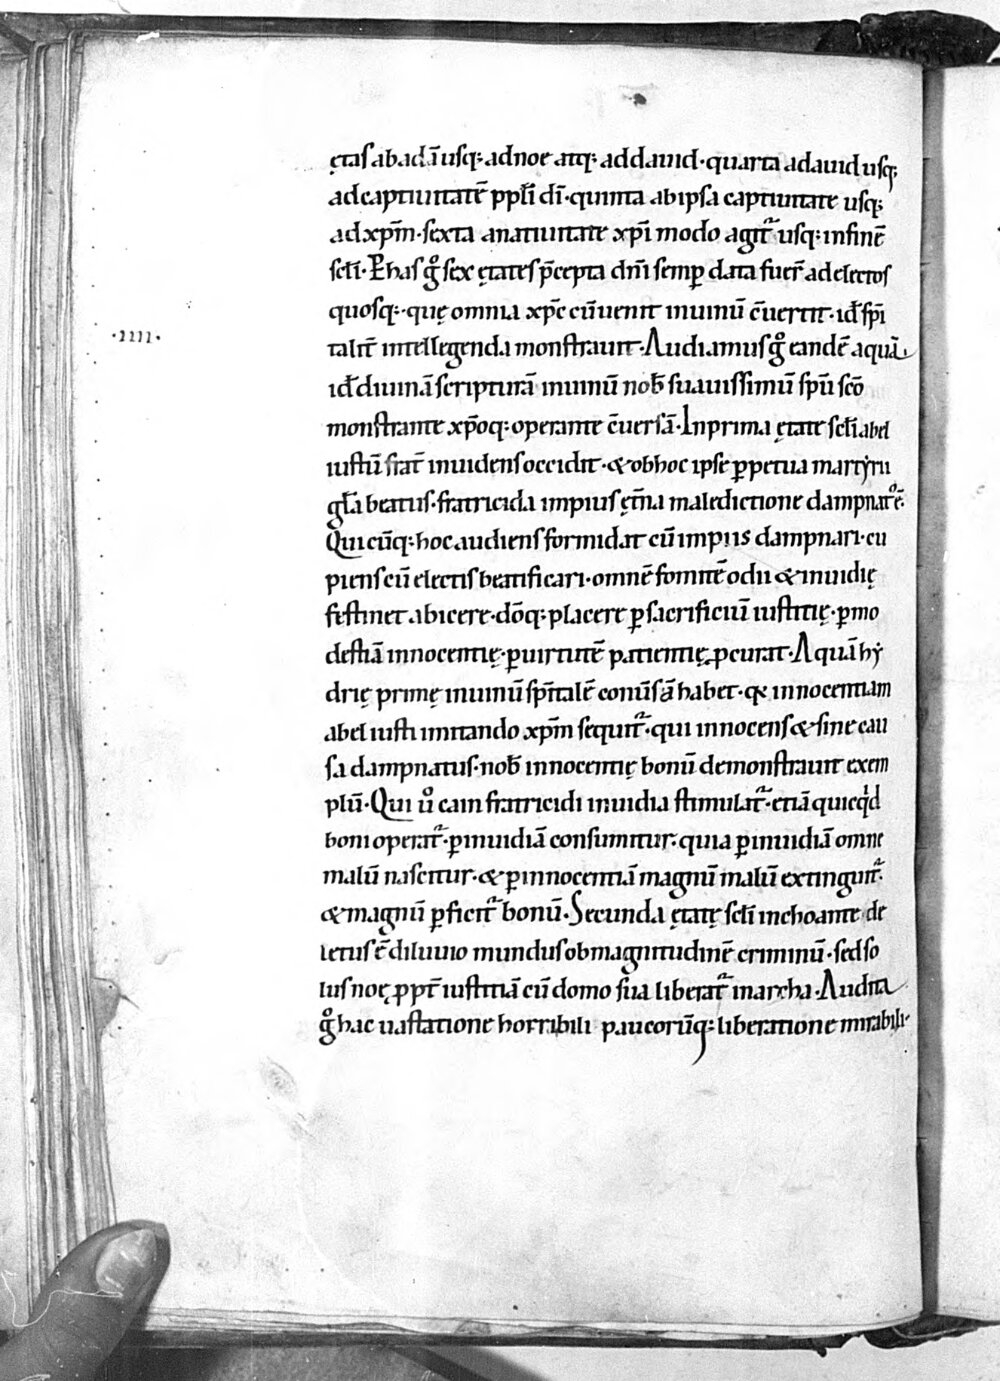 ętas abadā usq; adnoe atq; addauid· quarta adauid usq;
adcaptiuitatē ppłi dī· quinta abipsa captiuitate usq;
adxp̄m· sexta anatiuitate xp̄i modo agit᷑ usq; infinē
scłi· P̱has gͦ sex ętates p̄cepta dnī semꝑ data fuer̄ adelectos
quosq;· quę omnia xp̄c cū uenit inuinū c̄uertit· id ē sp̄i
talit̄ intellegenda monstrauit· Audiamus gͦ eandē aquā
id ē diuinā scripturā inuinū nob̄ suauissimū sp̄u sc̄o
monstrante xp̄oq; operante c̄uersā· Inprima ętate scłi abel
iustū frat̄ inuidens occidit· &obhoc ipse ꝑpetua martyrii
głā beatus· fratricida impius ęt̄na maledictione dampnatͦ ē·
Quicūq; hoc audiens formidat cū impiis dampnari· cu
piens cū electis beatificari· omnē fomitē odii &inuidię
festinet abicere· dōq; placere ꝑ sacrificiū iustitię· ꝑmo
destiā innocentię· ꝑuirtutē patientię ꝓcurat· Aquā hy
drię primę inuinū sp̄italē conūsā habet· q& innocentiam
abel iusti imitando xp̄m sequit᷑· qui innocens &sine cau
sa dampnatus· nob̄ innocentię bonū demonstrauit exem
plū· Qui uͦ cain fratricidi inuidia stimulat᷑· etiā quicq̇d
boni operat᷑· ꝑinuidiā consumitur· quia ꝑinuidiā omne
malū nascitur· &ꝑinnocentiā magnū malū extinguit᷑·
&magnū ꝑficit᷑ bonū· Secunda ętatę scłi inchoante de
letus ē diluuio mundus obmagnitudinē criminū· sed so
lus noę ꝓpt̄ iustitiā cū domo sua liberat᷑ inarcha· Audita
gͦ hac uastatione horribili paucorūq; liberatione mirabili·
·IIII·